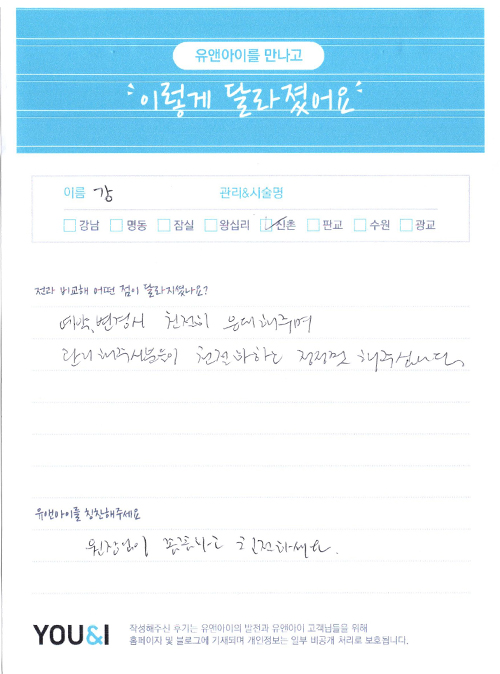 유앤아이를 만나고
이렇게 달라졌어요
이름 강 관리&시술명
강남 명동 잠실 왕십리 신촌 판교 수원 광교
전과 비교해 어떤 점이 달라지셨나요?
예약,변경시 친절히 응대해주며
관리해주시는분들이 친절하하는 정성껏 해주십니다.
유앤아이를 칭찬해주세요
원장님이 꼼꼼하고 친절하세요.
YOU&I
작성해주신 후기는 유앤아이의 발전과 유앤아이 고객님들을 위해
홈페이지 및 블로그에 기재되며 개인정보는 일부 비공개 처리로 보호됩니다.